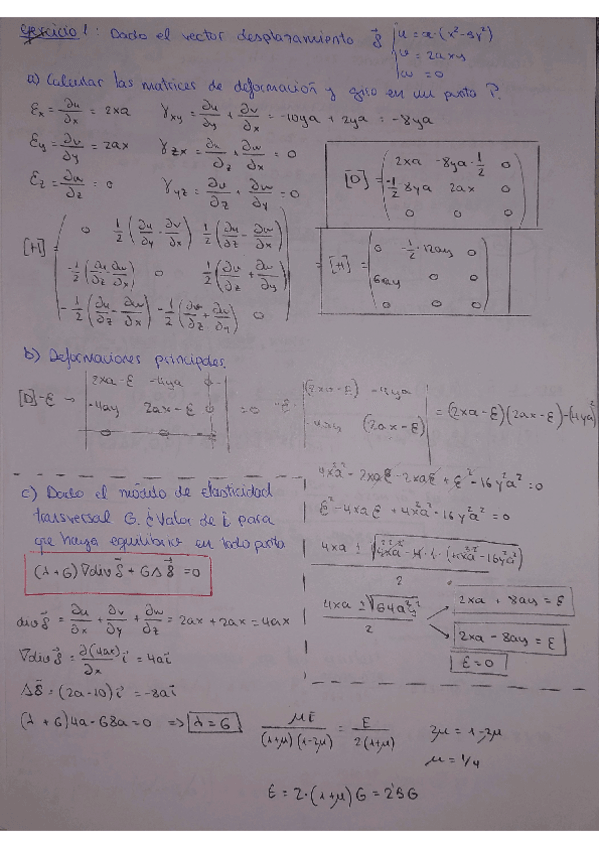 ejercicio 1: Dado el vector desplazamiento δ⃗ { u = a·(x²-5y²)
v = 2axy
w = 0
a) Calcular las matrices de deformación y giro en un punto P.
εx = ∂u/∂x = 2xa   γxy = ∂u/∂y + ∂v/∂x = -10ya + 2ya = -8ya
εy = ∂v/∂y = 2ax   γzx = ∂u/∂z + ∂w/∂x = 0
εz = ∂w/∂z = 0   γyz = ∂v/∂z + ∂w/∂y = 0
[D] = ( 2xa  -8ya·1/2  0
-1/2 8ya  2ax  0
0  0  0 )
[H] = ( 0  1/2(∂u/∂y - ∂v/∂x)  1/2(∂u/∂z - ∂w/∂x)
0  1/2(∂v/∂z + ∂w/∂y)
-1/2(∂u/∂z - ∂w/∂x)  -1/2(∂v/∂z + ∂w/∂y)  0 )
= [H] = ( 0  -1/2·12ay  0
6ay  0  0
0  0  0 )
b) Deformaciones principales.
[D]-ε → | 2xa-ε  -4ya  0
-4ay  2ax-ε  0
0  0  | = 0   -ε· | (2xa-ε)  -4ya
-4ay  (2ax-ε) | = (2xa-ε)(2ax-ε)-(4ya)²
4x²a² - 2xaε - 2xaε + ε² - 16y²a² = 0
ε² - 4xaε + 4x²a² - 16y²a² = 0
(4xa ± √(64a²y²))/2
2xa + 8ay = ε
2xa - 8ay = ε
ε = 0
c) Dado el módulo de elasticidad
transversal G. ¿Valor de λ para
que haya equilibrio en todo punto
(λ+G)∇div δ⃗ + GΔ δ⃗ = 0
div δ⃗ = ∂u/∂x + ∂v/∂y + ∂w/∂z = 2ax + 2ax = 4ax
∇div δ⃗ = ∂(4ax)/∂x i⃗ = 4a i⃗
Δδ⃗ = (2a-10) i⃗ = -8a i⃗
(λ+G)4a - G8a = 0 => λ = G   μE/((1+μ)(1-2μ)) = E/(2(1+μ))   2μ = 1-2μ
μ = 1/4
E = 2·(1+μ)G = 2'5G